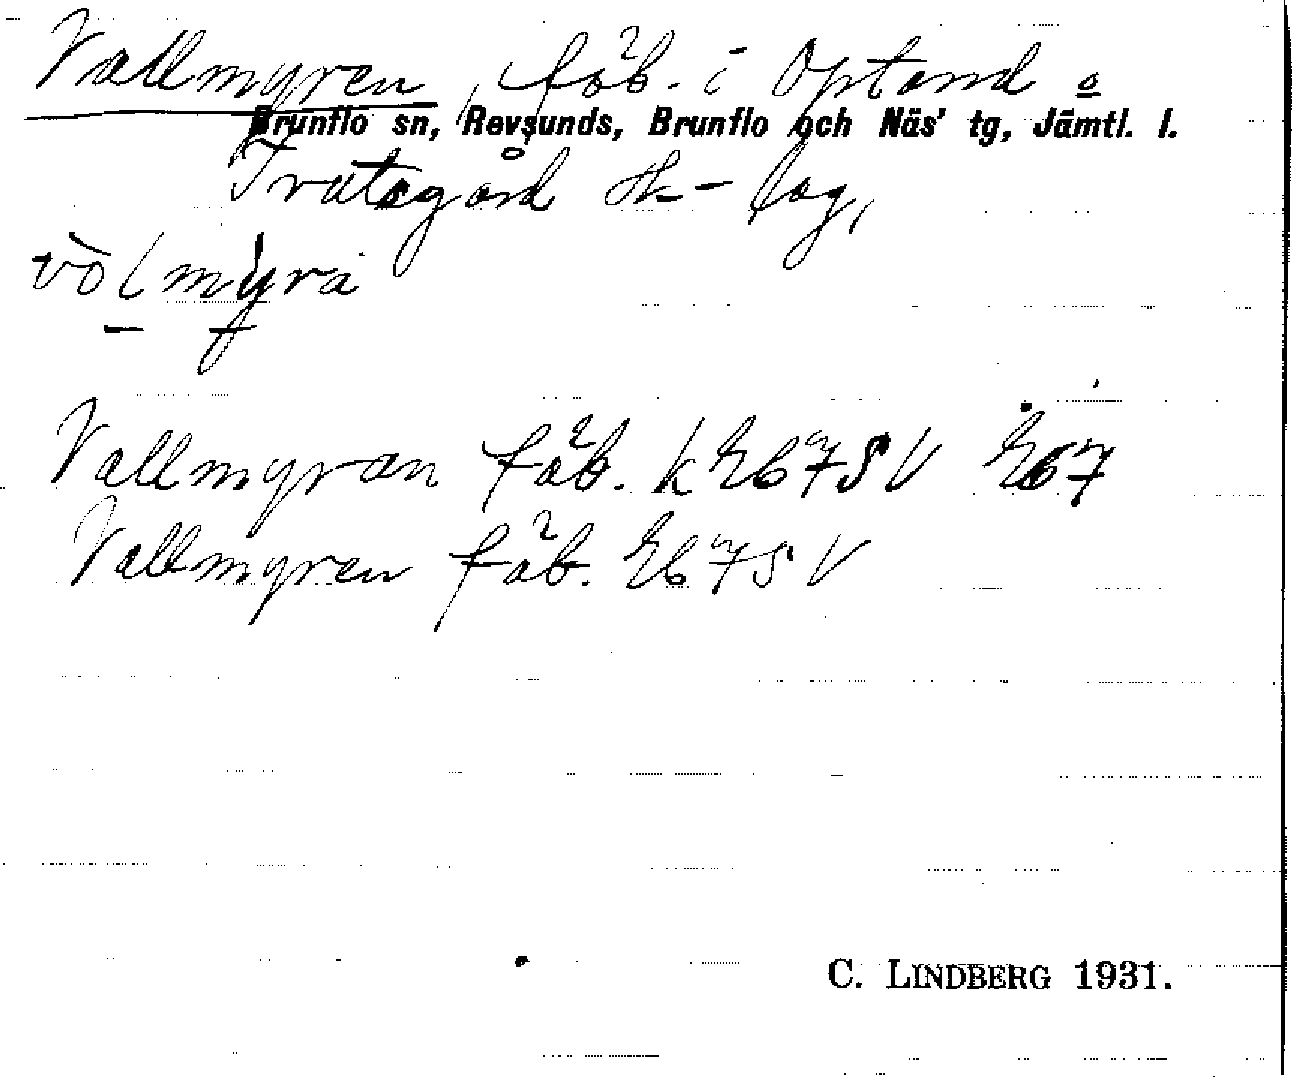 Vallmyren, fäb. i Optand o
Brunflo sn, Revsunds, Brunflo och Näs' tg, Jämtl. l.
Tratsgård sk-lag,
Vallmyran fäb. k Eb 67 SV Eb 7
Vallmyren fäb. Eb 7 SV
C. LINDBERG 1931.